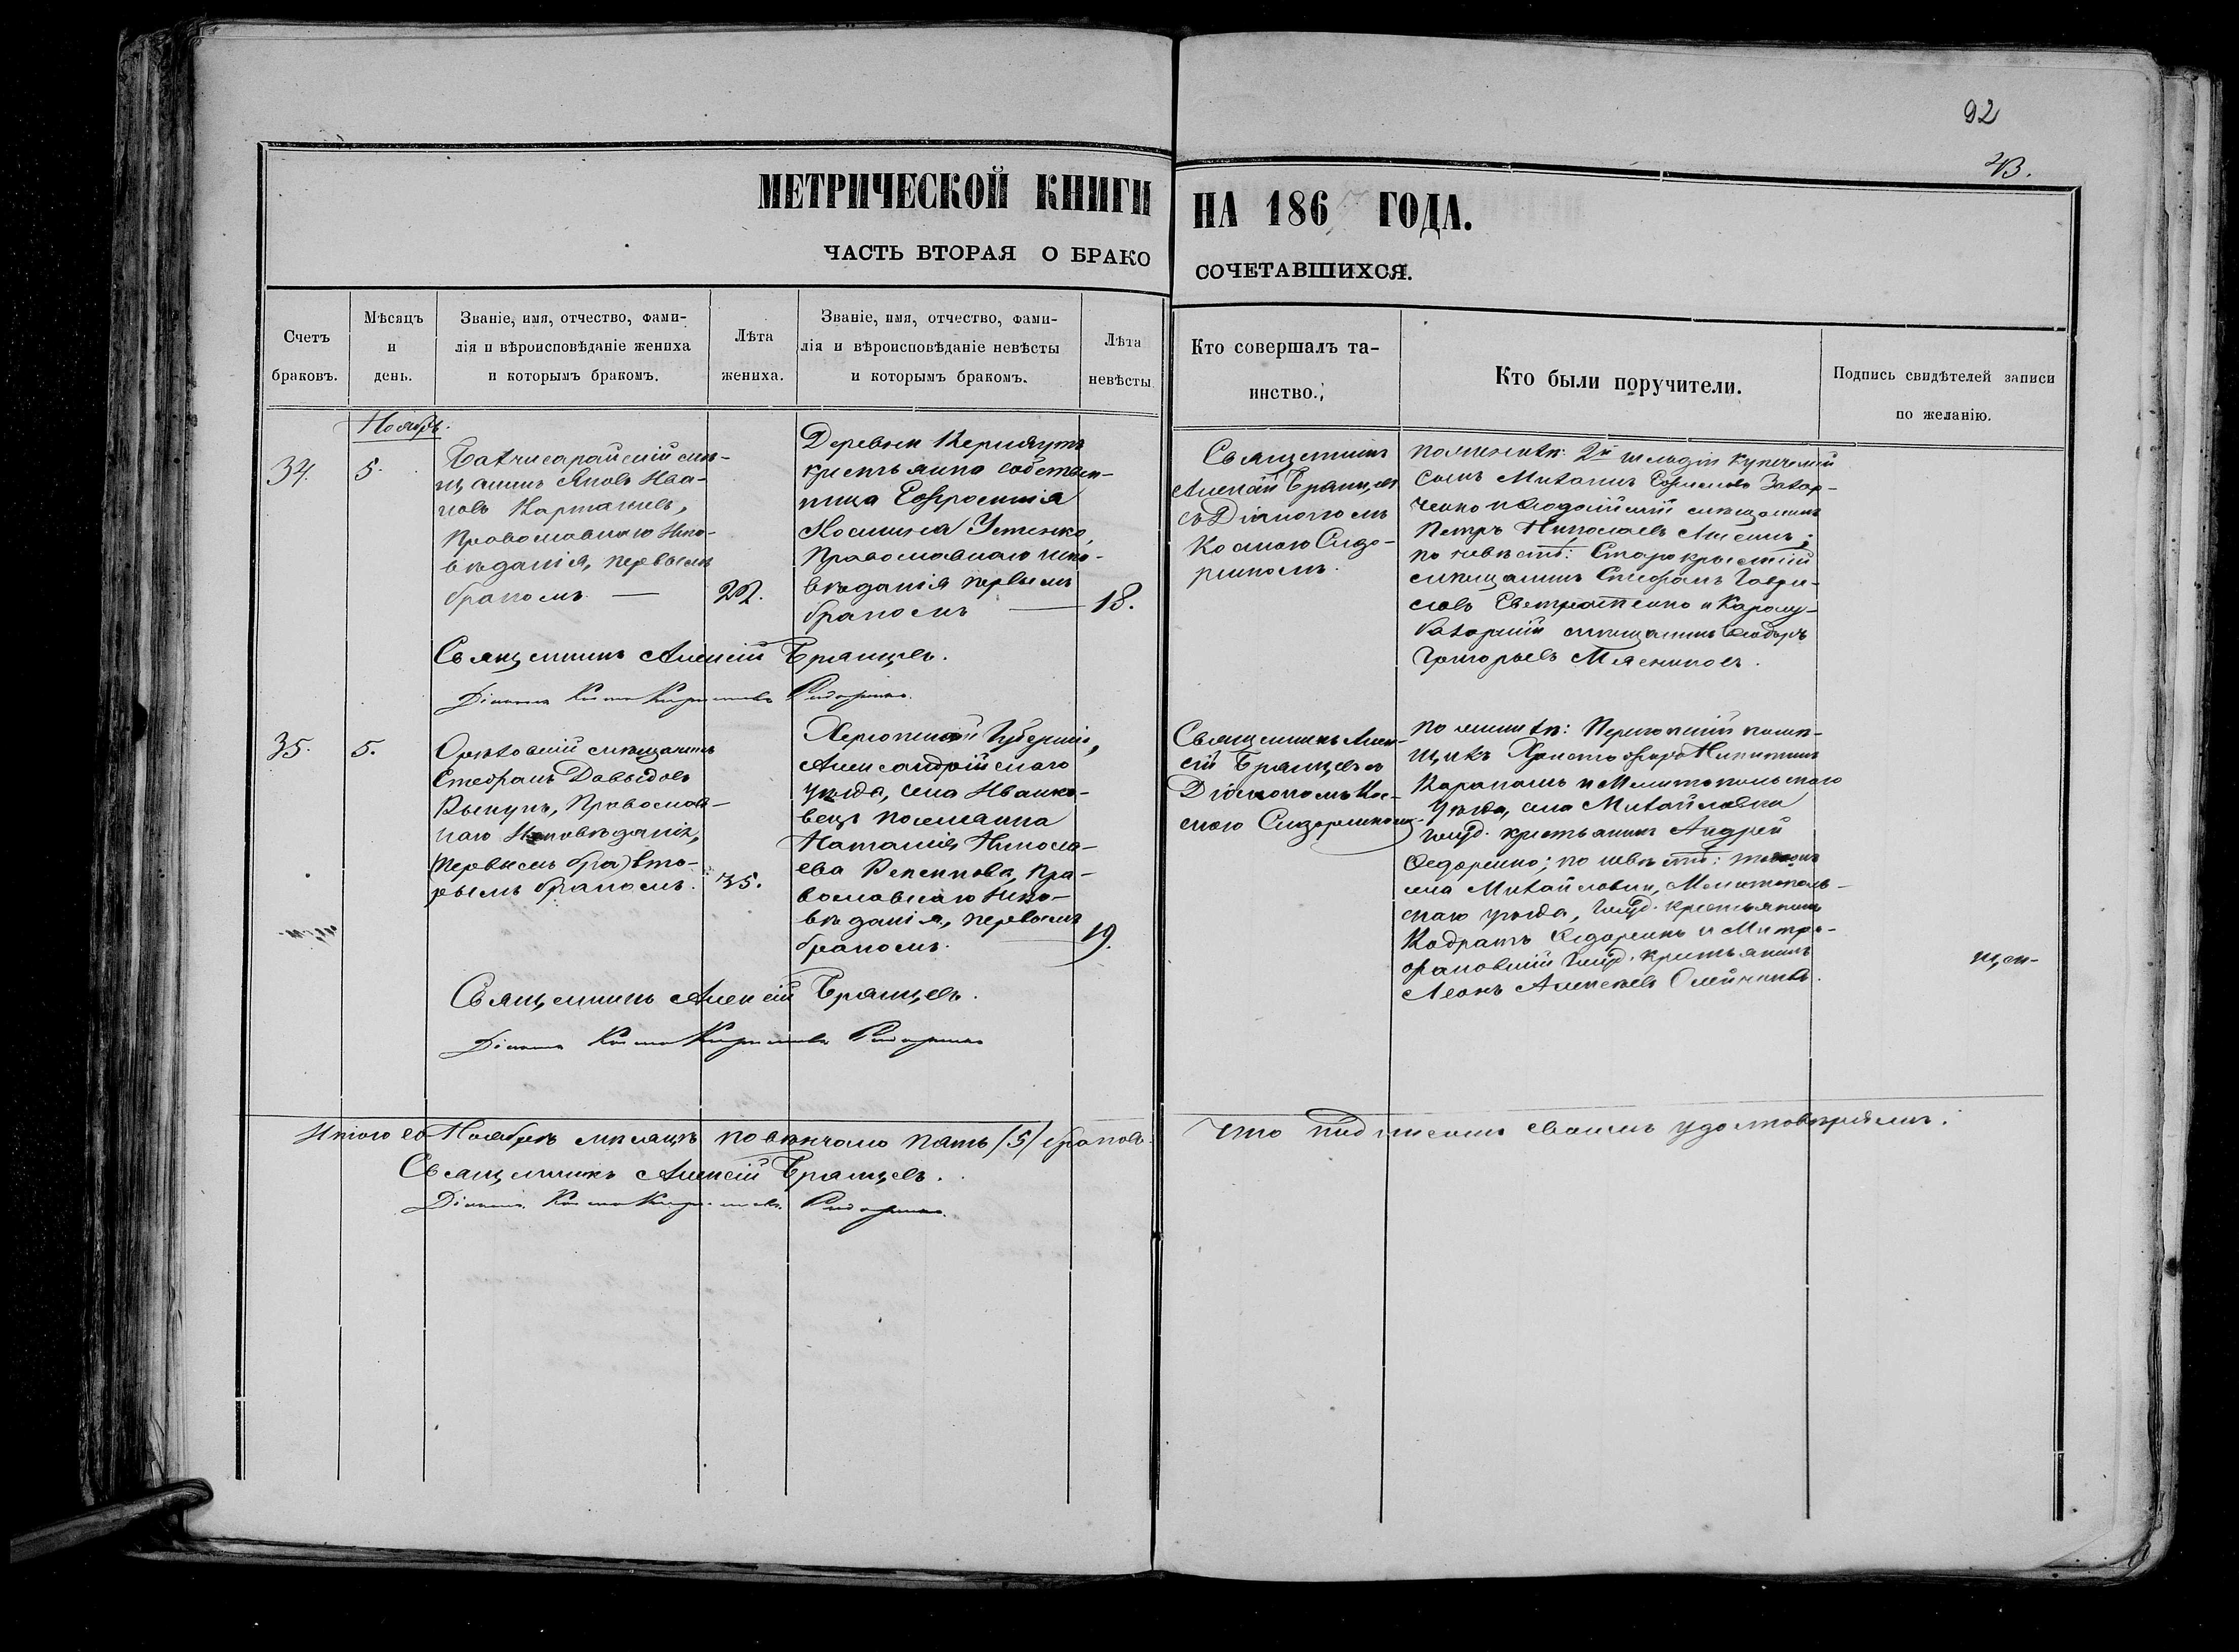 92
43.
МЕТРИЧЕСКОЙ КНИГИ НА 186 ГОДА.
ЧАСТЬ ВТОРАЯ О БРАКОСОЧЕТАВШИХСЯ.
Счетъ
браковъ.
Мѣсяцъ
и
день.
Званіе, имя, отчество, фами-
лія и вѣроисповѣданіе жениха
и которымъ бракомъ.
Лѣта
жениха.
Званіе, имя, отчество, фами-
лія и вѣроисповѣданіе невѣсты
и которымъ бракомъ.
Лѣта
невѣсты.
Кто совершалъ та-
инство.
Кто были поручители.
Подпись свидѣтелей записи
по желанію.
Ноябрь.
34.
5.
Бахчисарайскій мѣ-
щанинъ Яковъ Ива-
новъ
Православнаго Испо-
вѣданія, первымъ
бракомъ —
22.
Деревни
крестьянка собствен-
ница Евфросинія
Косьмина Устенко,
Православнаго испо-
вѣданія первымъ
бракомъ —
18.
Священникъ
Алексѣй Бранцевъ
съ Діакономъ
Космою Сидо-
ринкомъ.
по женихѣ: 2й гильдіи купеческій
сынъ Михаилъ Ефимовъ Захар-
ченко и Ѳеодосійскій мѣщанинъ
Петръ Николаевъ Лисинъ;
по невѣстѣ: Старокрымскій
мѣщанинъ Стефанъ Гаври-
ловъ и Карасу-
базарскій мѣщанинъ Ѳеодоръ
Григорьевъ Мясниковъ.
Священникъ Алексѣй Бранцевъ.
Діаконъ Косма Кириловъ
35.
5.
Орѣховскій мѣщанинъ
Стефанъ Давыдовъ
Выкупъ, Православ-
наго Исповѣданія,
(первымъ бра) вто-
рымъ бракомъ.
35.
Херсонской Губерніи,
Александрійскаго
уѣзда, села Иванко-
вецъ поселянка
Наталія Никола-
ева Репенкова, пра-
вославнаго испо-
вѣданія, первымъ
бракомъ. —
19.
Священникъ Алек-
сѣй Бранцевъ съ
Діакономъ Кос-
мою Сидоринкомъ
по женихѣ: Перекопскій помѣ-
щикъ Христофоръ Никитинъ
Карапашъ и Мелитопольскаго
Уѣзда, села Михайловки
госуд. крестьянинъ Андрей
Ѳедоренко; по невѣстѣ:
села Михайловки, Мелитополь-
скаго уѣзда, Госуд. крестьянинъ
Кодратъ Ѳедоренко и Митро-
фановскій Госуд. крестьянинъ
Леонъ Алексѣевъ Олейникъ.
щен-
Священникъ Алексѣй Бранцевъ.
Діаконъ Косма Кириловъ
Итого въ Ноябрѣ мѣсяцѣ повѣнчано пять /5/ браковъ.
Что подписомъ своимъ удостовѣряемъ:
Священникъ Алексѣй Бранцевъ.
Діаконъ Косма Кириловъ